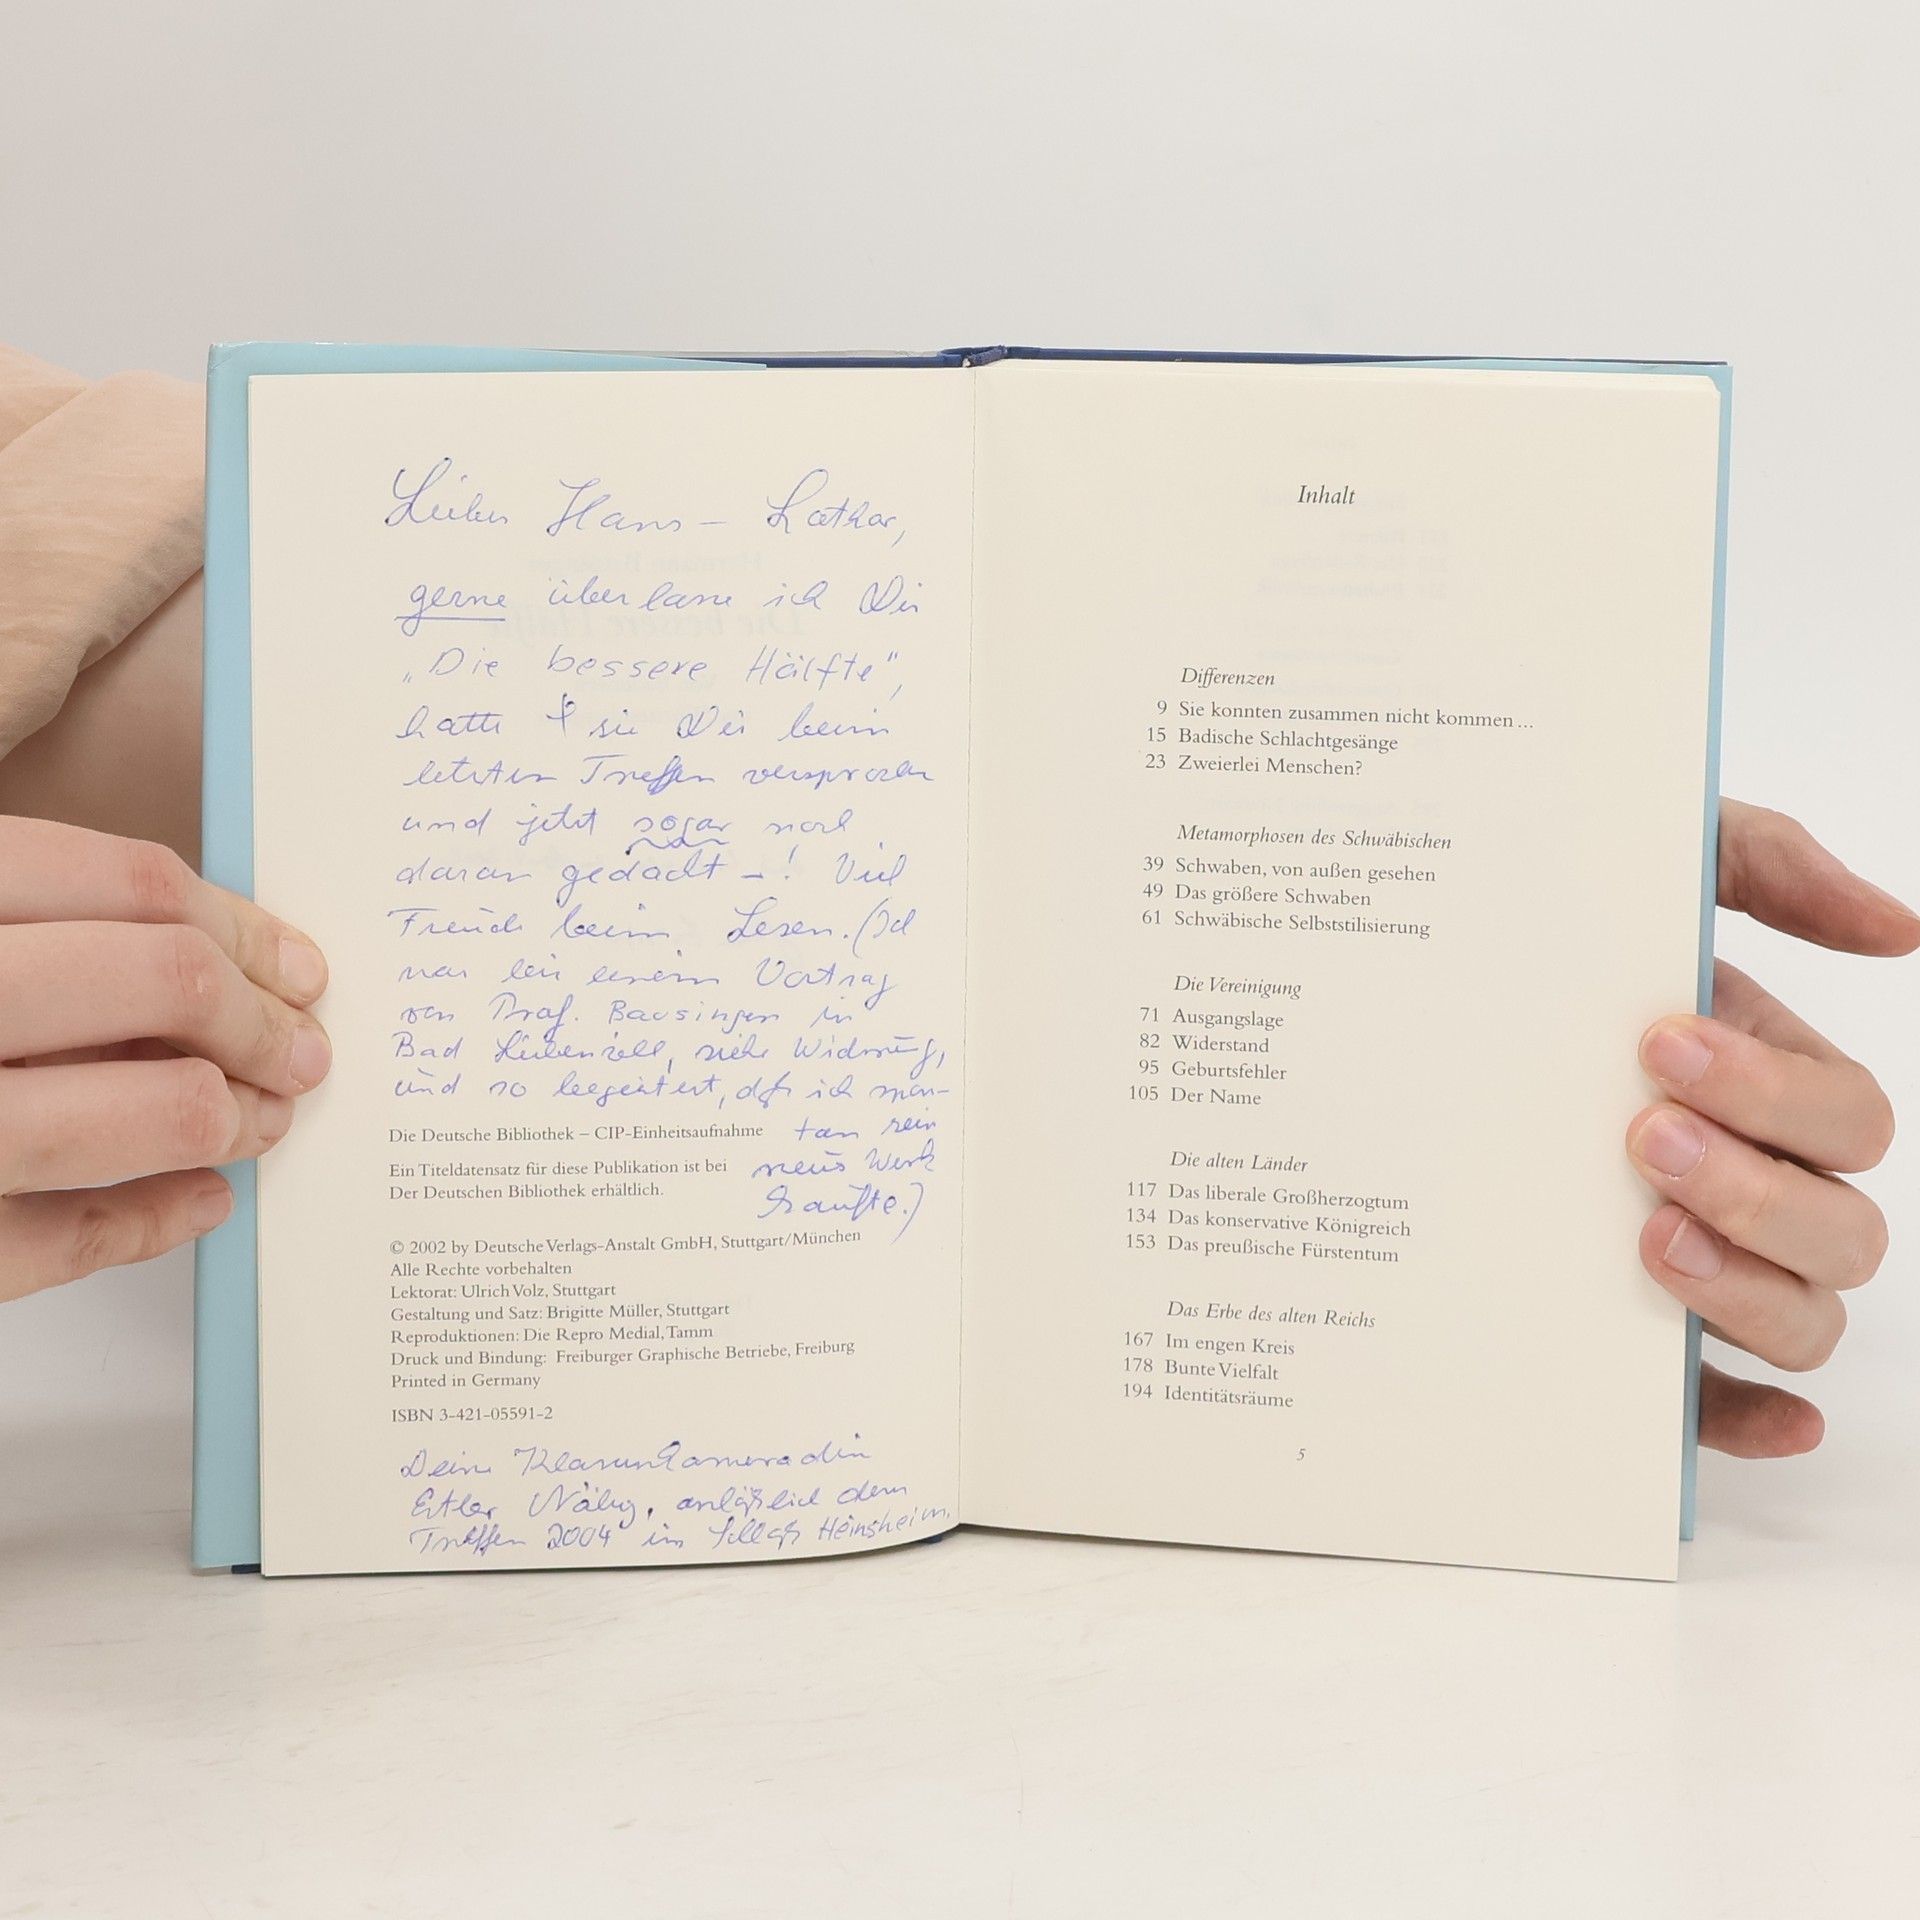 Lieber Hans-Lothar,
gerne überlasse ich Dir
„Die bessere Hälfte",
hatte sie Dir beim
letzten Treffen versprochen
und jetzt sogar noch
daran gedacht –! Viel
Freude beim Lesen. (Ich
war bei einem Vortrag
von Prof. Bausinger in
Bad Liebenzell, siehe Widmung,
und so begeistert, daß ich spon-
tan sein
neues Werk
kaufte.)
Die Deutsche Bibliothek – CIP-Einheitsaufnahme
Ein Titeldatensatz für diese Publikation ist bei
Der Deutschen Bibliothek erhältlich.
© 2002 by Deutsche Verlags-Anstalt GmbH, Stuttgart/München
Alle Rechte vorbehalten
Lektorat: Ulrich Volz, Stuttgart
Gestaltung und Satz: Brigitte Müller, Stuttgart
Reproduktionen: Die Repro Medial, Tamm
Druck und Bindung: Freiburger Graphische Betriebe, Freiburg
Printed in Germany
ISBN 3-421-05591-2
Deine Klassenkameradin
anläßlich dem
Treffen 2004 im Schloß Heinsheim.
Inhalt
Differenzen
9 Sie konnten zusammen nicht kommen ...
15 Badische Schlachtgesänge
23 Zweierlei Menschen?
Metamorphosen des Schwäbischen
39 Schwaben, von außen gesehen
49 Das größere Schwaben
61 Schwäbische Selbststilisierung
Die Vereinigung
71 Ausgangslage
82 Widerstand
95 Geburtsfehler
105 Der Name
Die alten Länder
117 Das liberale Großherzogtum
134 Das konservative Königreich
153 Das preußische Fürstentum
Das Erbe des alten Reichs
167 Im engen Kreis
178 Bunte Vielfalt
194 Identitätsräume
5